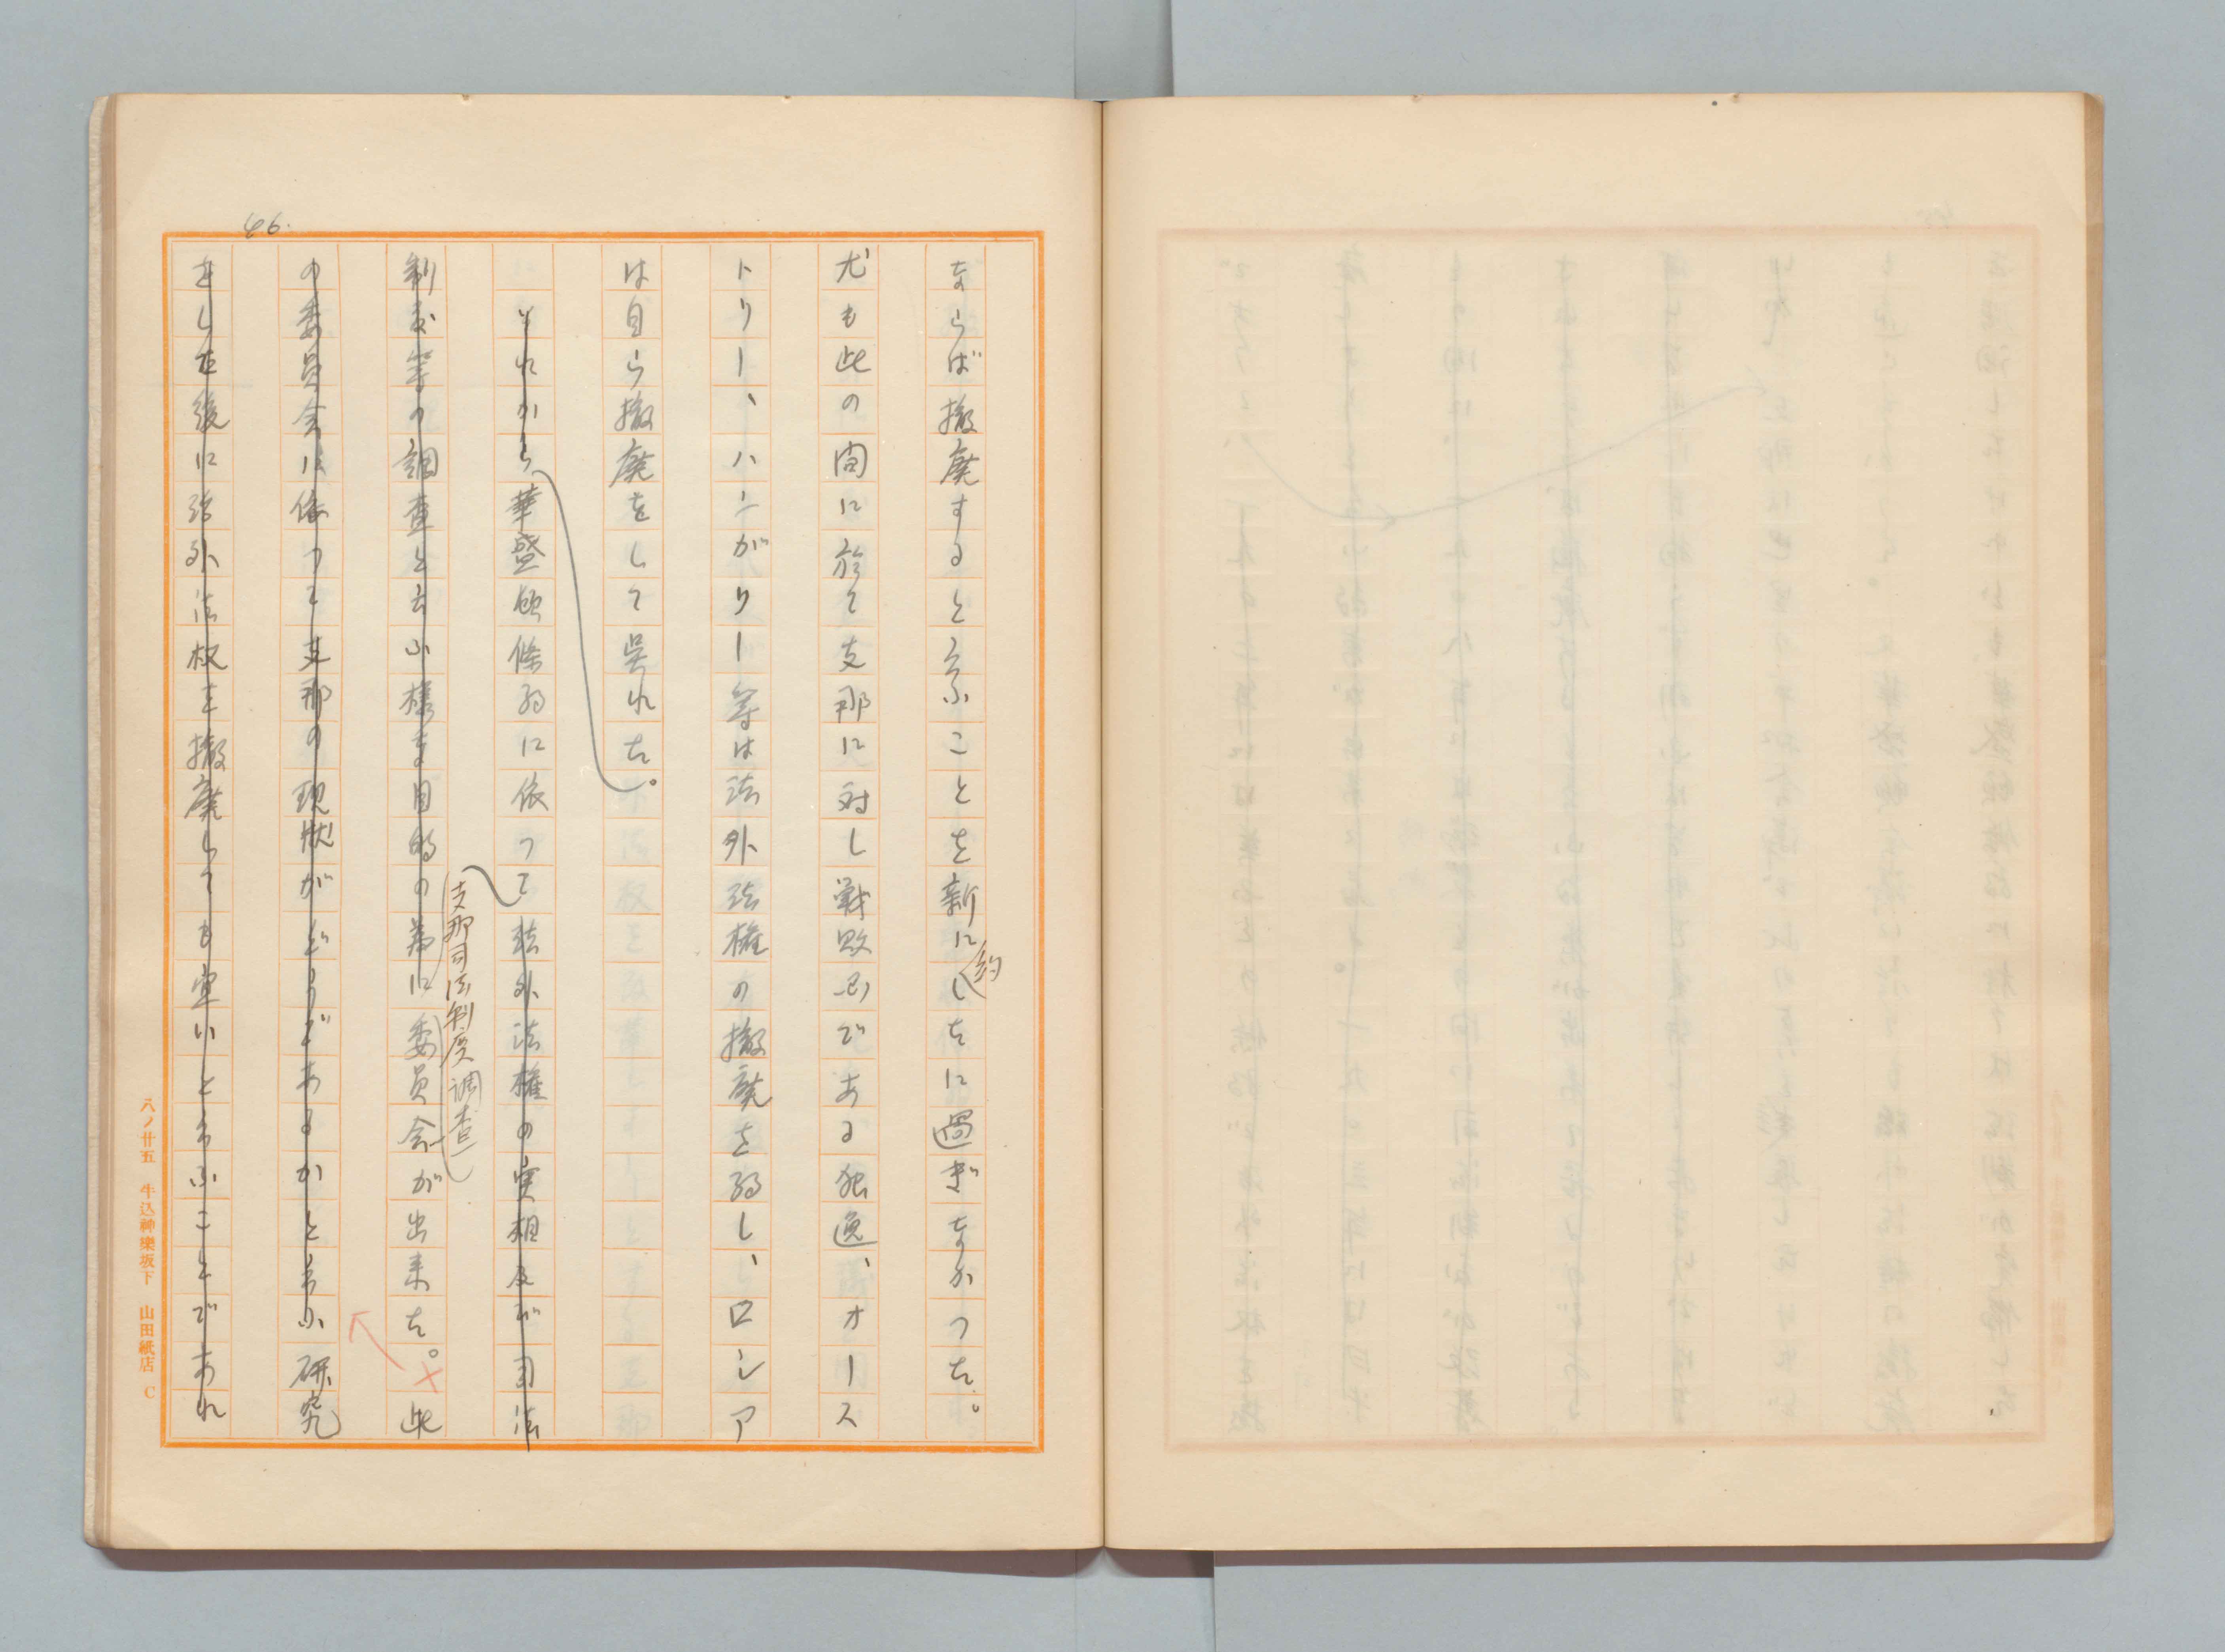 46.
ならば撤廃すると云ふことを新に約したに過ぎなかつた。
尤も此の間に於て支那に対し戦敗国である独逸、オース
トリー、ハンガリー等は治外法権の撤廃を約し、ロシア
は自ら撤廃をして呉れた。
それから華盛頓條約に依つて治外法権の実相及び司法
制度等の調査と云ふ様な目的の為に委員会が出来た。此
支那司法制度調査
の委員会に依つて支那の現状がどうであるかと云ふ研究
をした後に治外法权を撤廃しても宜いと云ふことであれ
八ノ廿五 牛込神樂坂下 山田紙店 C